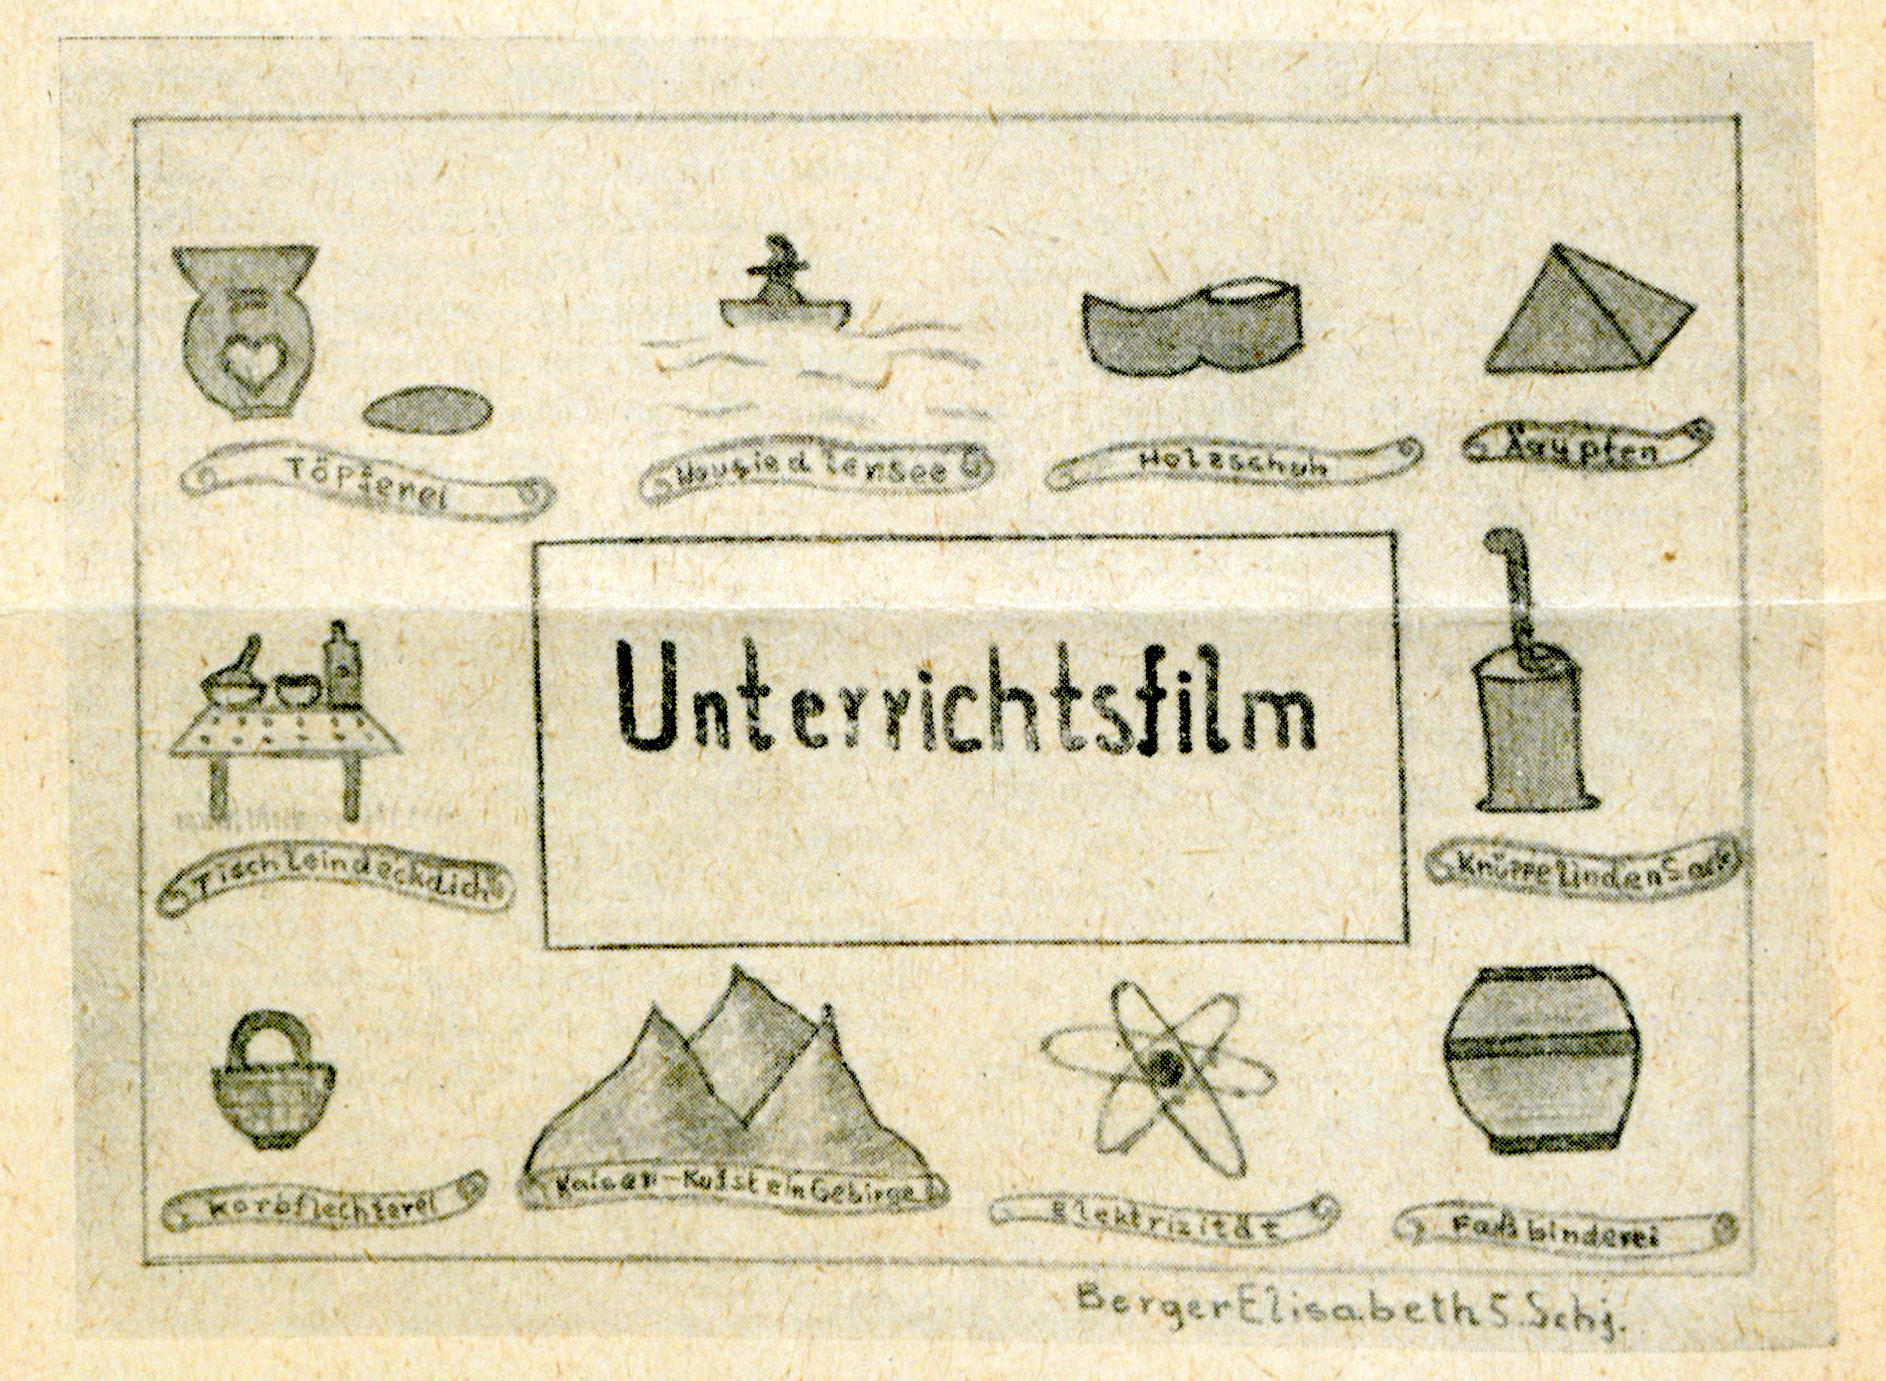 Töpferei
Neusiedlensee
Holzschuh
Ägypten
Unterrichtsfilm
Tischleindeckdich
KnüppelindenSack
Korbflechterei
Kaisen-KufsteinGebirge
Elektrizität
Faßbinderei
BergerElisabeth 5.Schj.